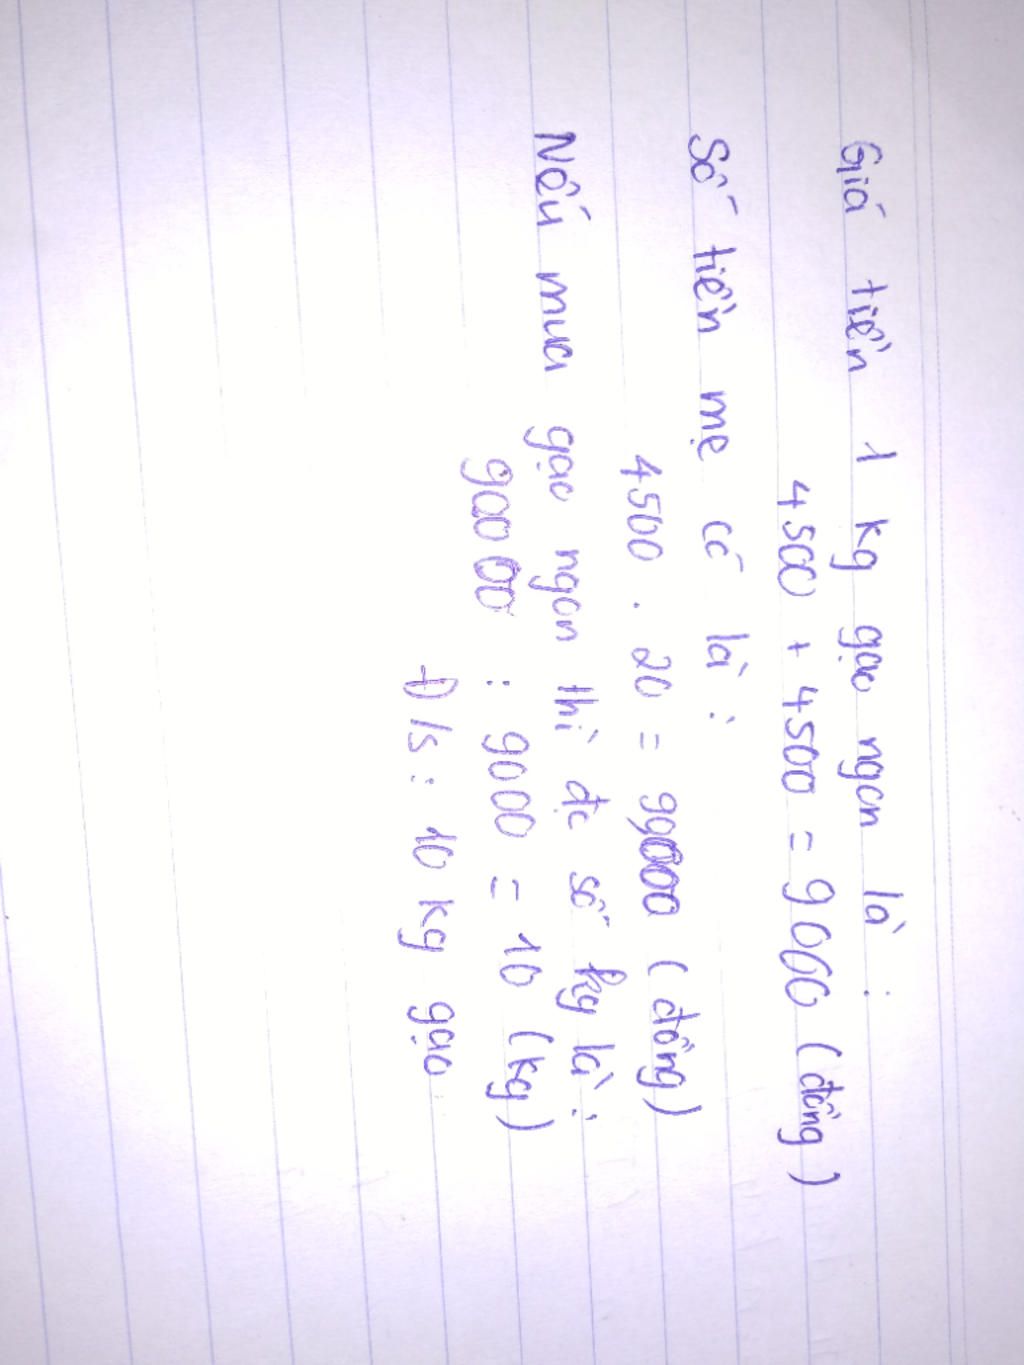 Giá tiền 1 kg gạo ngon là :
4500 + 4500 = 9000 (đồng)
Số tiền mẹ có là :
4500 . 20 = 99000 (đồng)
Nếu mua gạo ngon thì đc số kg là :
90000 : 9000 = 10 (kg)
Đ/s : 10 kg gạo